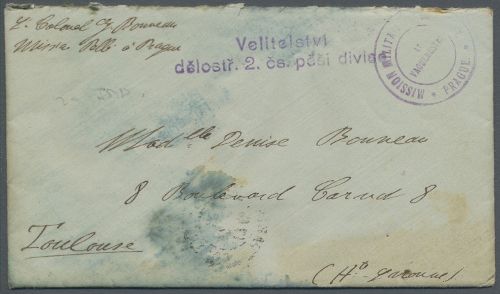 Lt Colonel Bonneau
Mission à Prague
Velitelství
dělostř. 2. čs. pěší divise
MISSION MILITA
PRAGUE
Mad elle Denise Bonneau
8 Boulevard Carnot 8
Toulouse
(Hte Garonne)